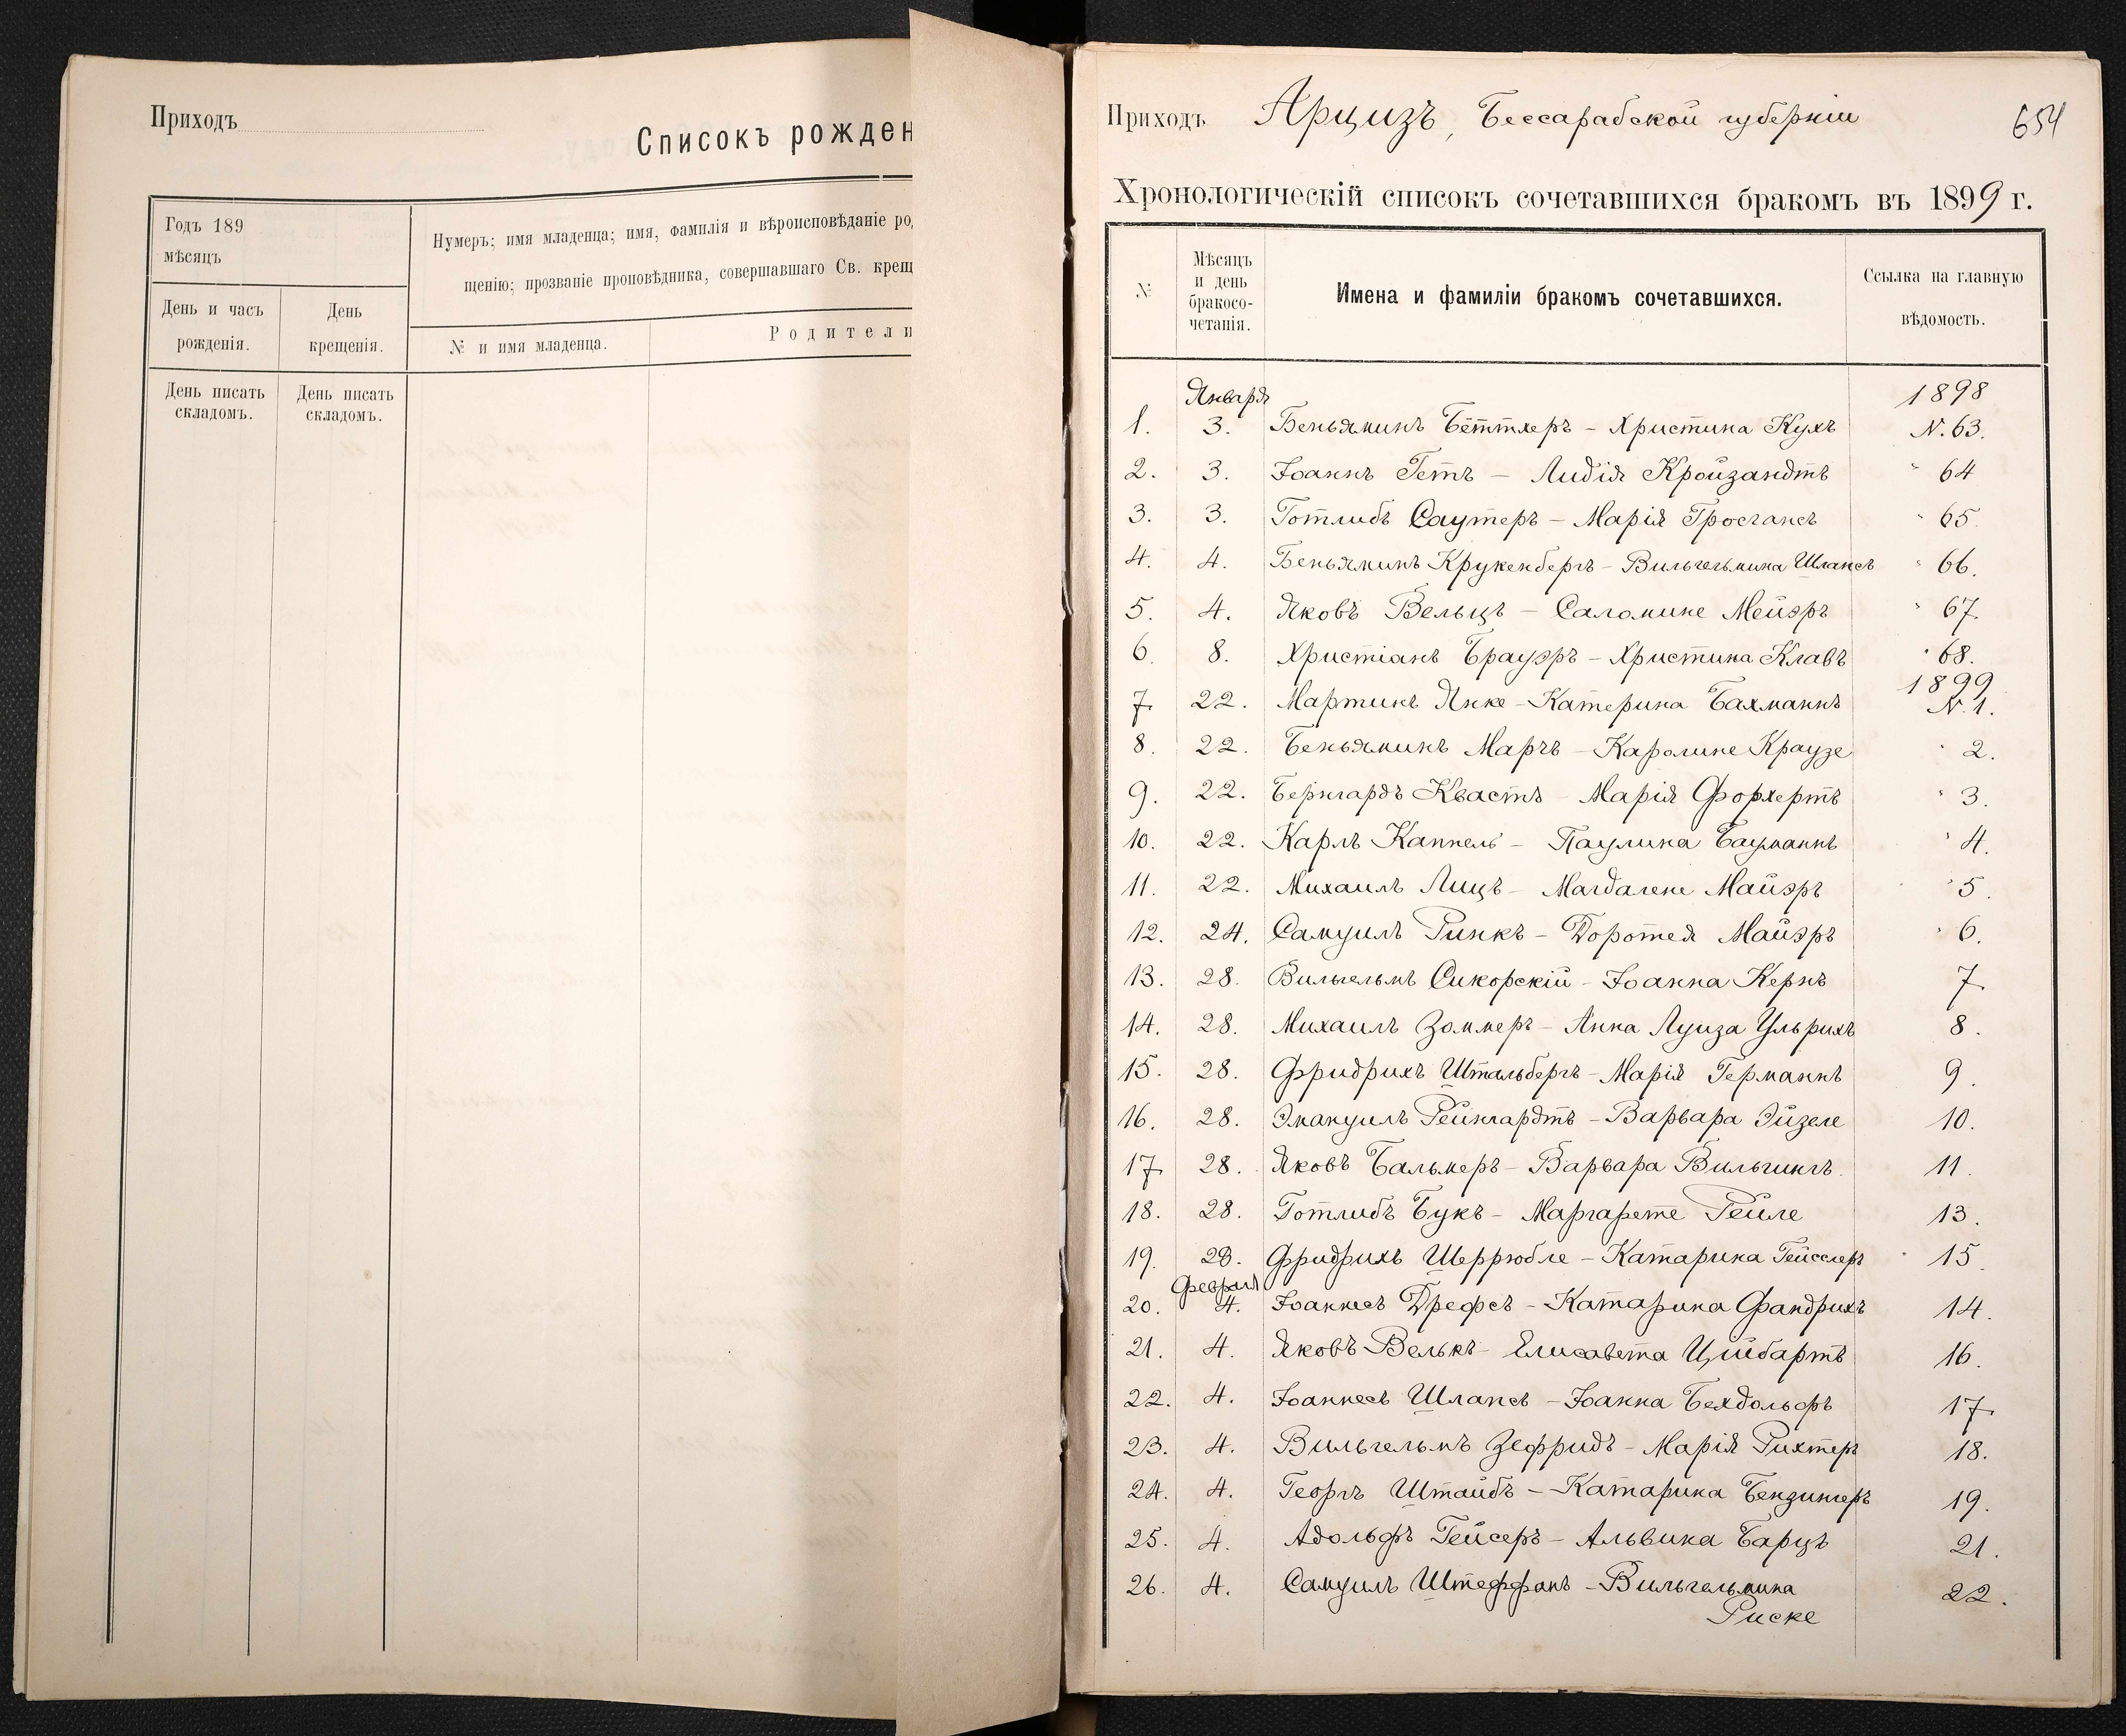 Приходъ
Списокъ рожден
Годъ 189
мѣсяцъ
Нумеръ; имя младенца; имя, фамилія и вѣроисповѣданіе ро
щенію; прозваніе проповѣдника, совершавшаго Св. крещ
День и часъ
рожденія.
День
крещенія.
№ и имя младенца.
Родители
День писать
складомъ.
День писать
складомъ.
Приходъ Арцизъ, Бессарабской губерніи
654
Хронологическій списокъ сочетавшихся бракомъ въ 1899 г.
№
Мѣсяцъ
и день
бракосо-
четанія.
Имена и фамиліи бракомъ сочетавшихся.
Ссылка на главную
вѣдомость.
Января 1898
1. 3. Беньяминъ Бёттхеръ - Христина Кухъ N. 63.
2. 3. Іоаннъ Гетъ - Лидія Кройзандтъ " 64
3. 3. Готлибъ Саутеръ - Марія Гросгансъ " 65.
4. 4. Беньяминъ Крукенбергъ - Вильгельмина Шлапсъ " 66.
5. 4. Яковъ Вельцъ - Саломине Мейэръ " 67.
6. 8. Христіанъ Брауэръ - Христина Клавъ " 68.
1899
7. 22. Мартинъ Янке - Катерина Бахманнъ N. 1.
8. 22. Беньяминъ Маргъ - Каролине Краузе " 2.
9. 22. Бернгардъ Квастъ - Марія Форхертъ " 3.
10. 22. Карлъ Каппель - Паулина Бауманнъ " 4.
11. 22. Михаилъ Лицъ - Магдалене Майэръ " 5.
12. 24. Самуилъ Ринкъ - Доротея Майэръ " 6.
13. 28. Вильгельмъ Сикорскій - Іоанна Кернъ 7.
14. 28. Михаилъ Зоммеръ - Анна Луиза Ульрихъ 8.
15. 28. Фридрихъ Штальбергъ - Марія Германнъ 9.
16. 28. Эмануилъ Рейнгардтъ - Варвара Эйзеле 10.
17. 28. Яковъ Бальмеръ - Варвара Вильгингъ. 11.
18. 28. Готлибъ Букъ - Маргарете Рейле 13.
19. 28. Фридрихъ Шеррюбле - Катарина Гейсслеръ 15.
Февраля
20. 4. Іоаннесъ Дрефсъ - Катарина Фандрихъ 14.
21. 4. Яковъ Велькъ - Елисавета Цибартъ 16.
22. 4. Іоаннесъ Шлапсъ - Іоанна Бехдольфъ 17.
23. 4. Вильгельмъ Зефридъ - Марія Рихтеръ 18.
24. 4. Георгъ Штайбъ - Катарина Бензингеръ 19.
25. 4. Адольфъ Гейсеръ - Альвина Барцъ 21.
26. 4. Самуилъ Штеффанъ - Вильгельмина 22.
Риске